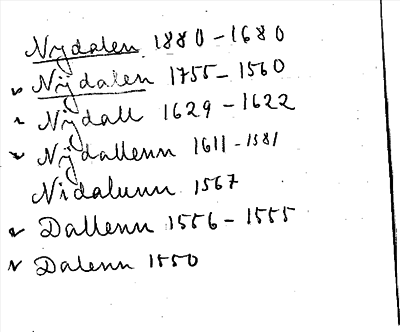 Nydalen 1880-1680
Nÿdalen 1755-1560
Nÿdall 1629-1622
Nÿdallenn 1611-1581
Nidalunn 1567
Dallenn 1556-1555
Dalenn 1550